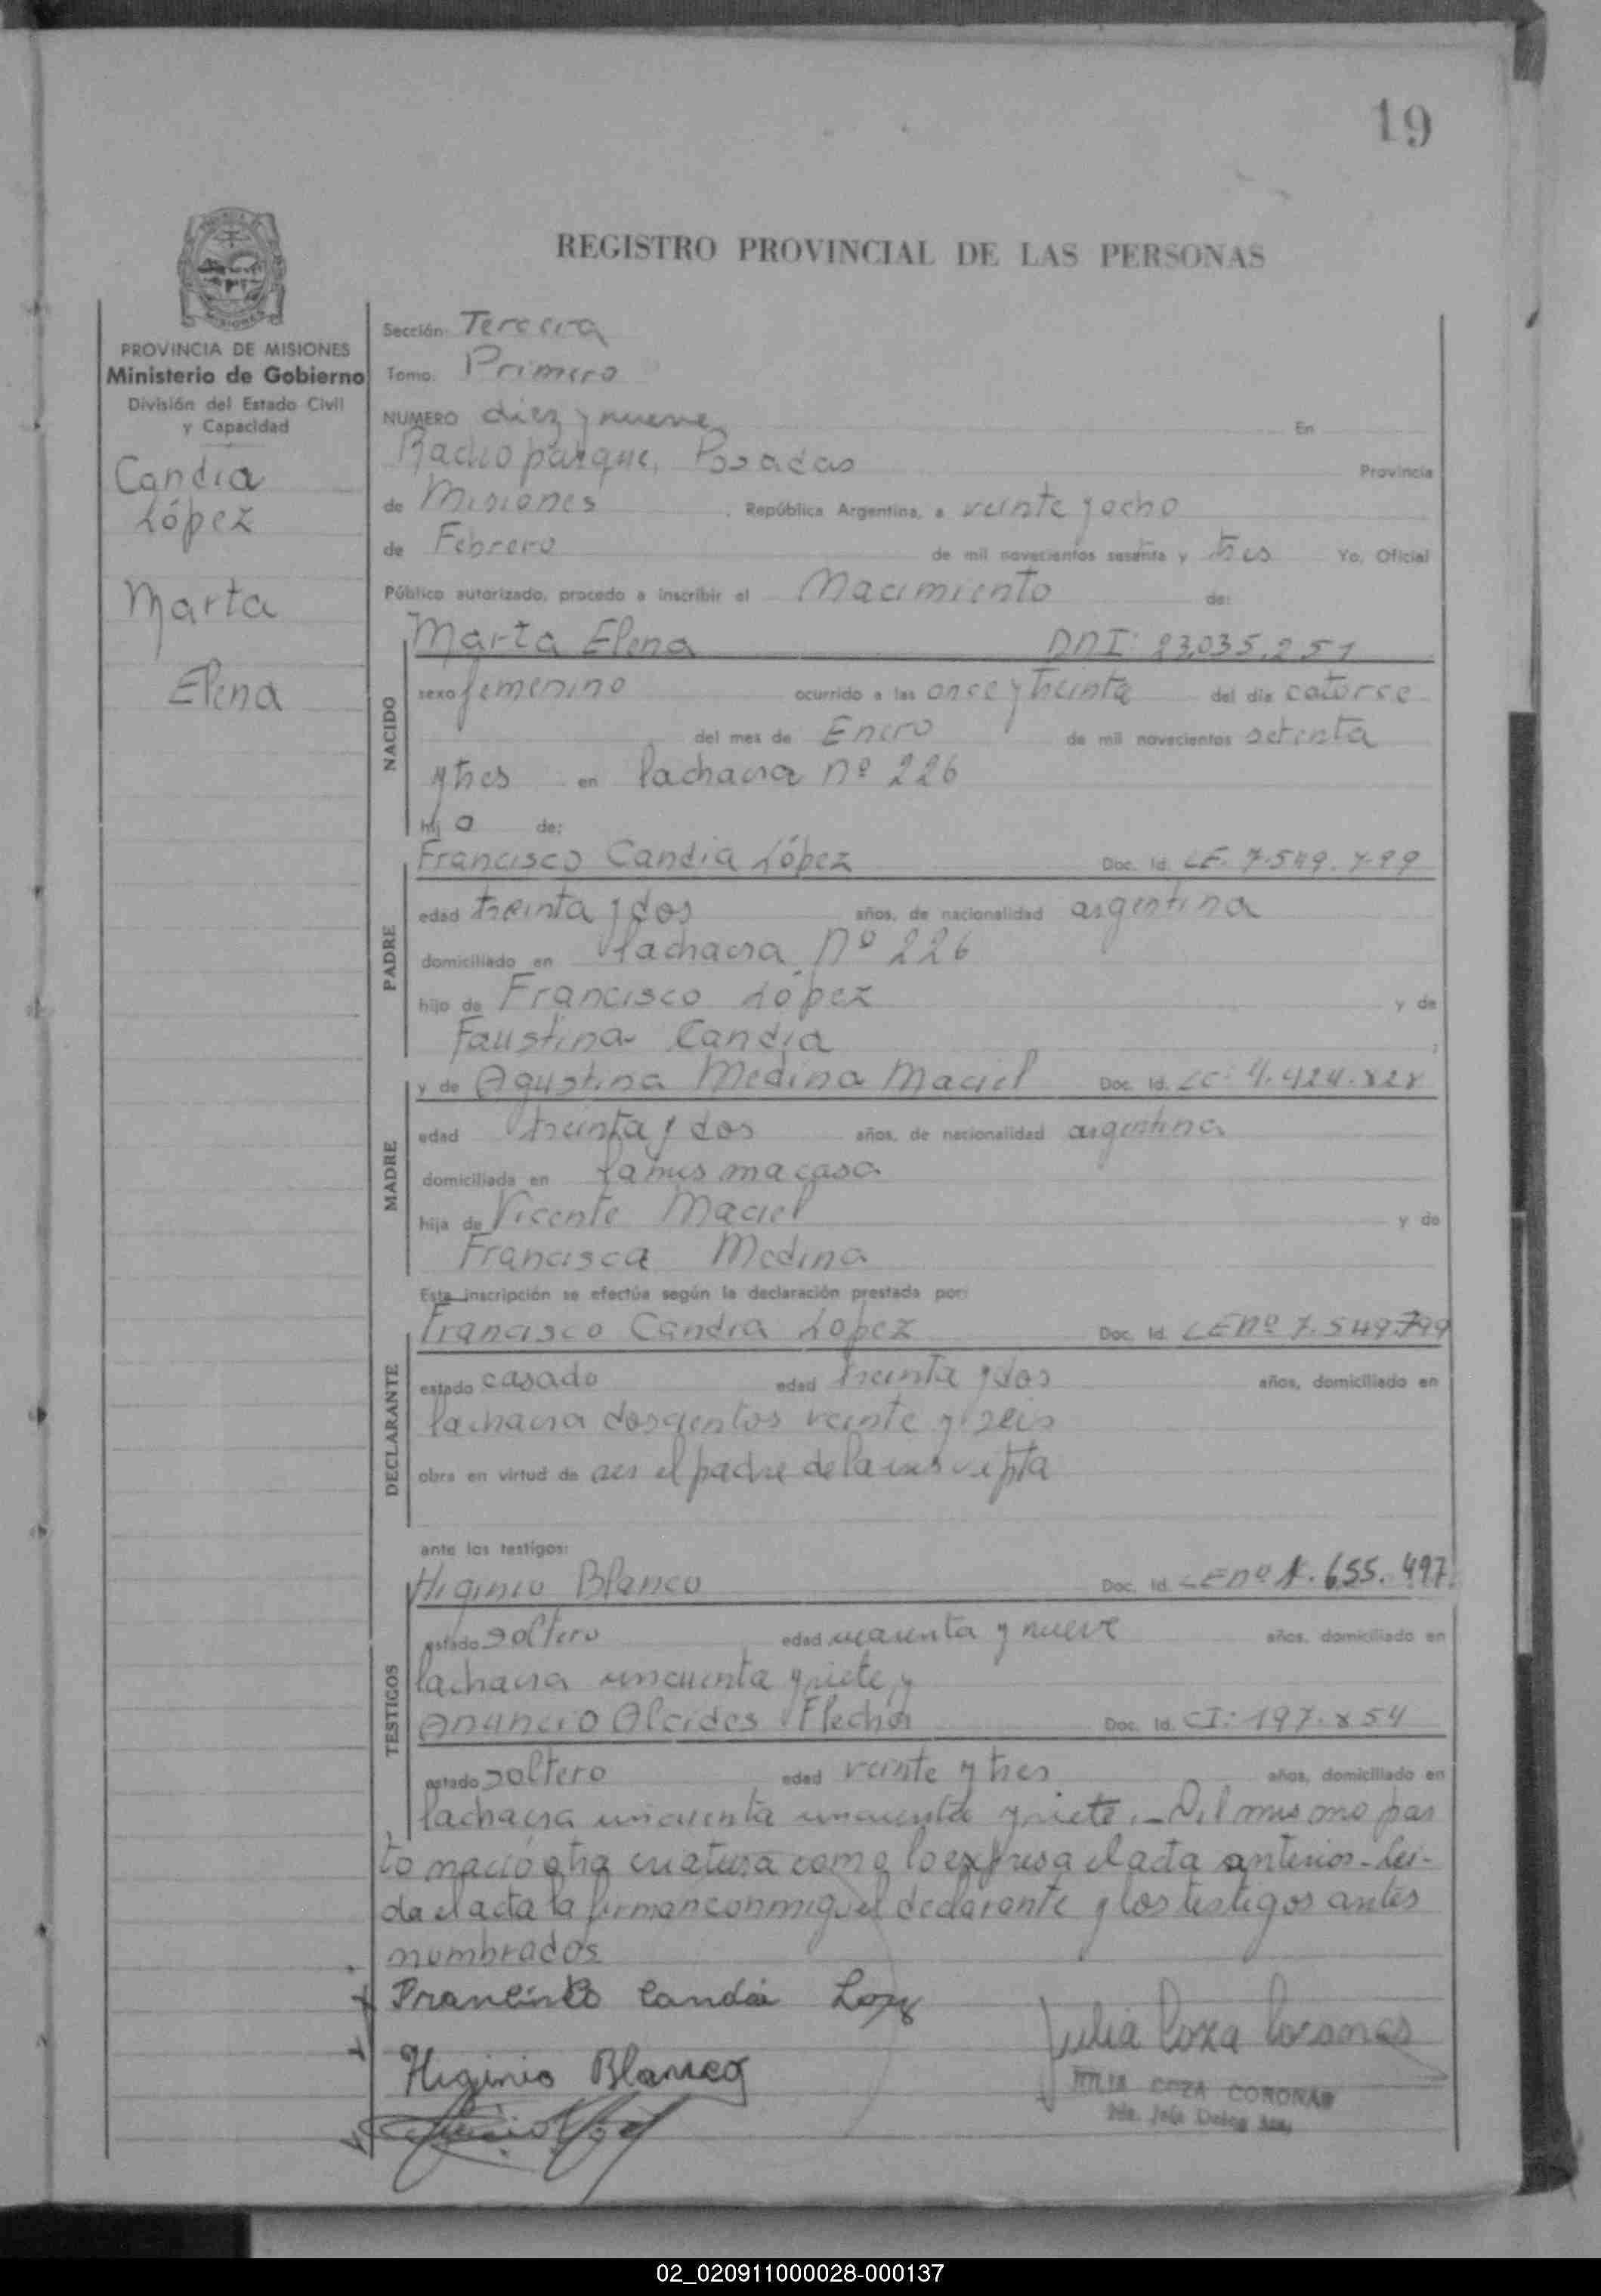 19
REGISTRO PROVINCIAL DE LAS PERSONAS
PROVINCIA DE MISIONES
Ministerio de Gobierno
División del Estado Civil
y Capacidad
Candia
López
Marta
Elena
Sección: Tercera
Tomo: Primero
NUMERO diez y nueve En
Posadas Provincia
de Misiones, República Argentina, a veinte y ocho
de Febrero de mil novecientos sesenta y tres Yo, Oficial
Público autorizado, procedo a inscribir el Nacimiento de:
Marta Elena DNI: 23.035.251
NACIDO
sexo femenino ocurrido a las once y treinta del día catorse
del mes de Enero de mil novecientos setenta
y tres en la chacra nº 226
hij a de:
Francisco Candia López Doc. Id. LE. 7.549.799
PADRE
edad treinta y dos años, de nacionalidad argentina
domiciliado en la chacra Nº 226
hijo de Francisco López y de
Faustina Candia ;
y de Agustina Medina Maciel Doc. Id. LC: 4.424.828
MADRE
edad treinta y dos años, de nacionalidad argentina
domiciliada en la mis ma casa
hija de Vicente Maciel y de
Francisca Medina
Esta inscripción se efectúa según la declaración prestada por:
Francisco Candia Lopez Doc. Id. LE nº 7.549.799
DECLARANTE
estado casado edad treinta y dos años, domiciliado en
la chacra doscientos veinte y seis
obra en virtud de ser el padre de la inscripta
ante los testigos:
Higinio Blanco Doc. Id. LE nº 1.655.497.
TESTIGOS
estado soltero edad cuarenta y nueve años, domiciliado en
la chacra cincuenta y siete y
Alcides Flecha Doc. Id. CI: 197.854
estado soltero edad veinte y tres años, domiciliado en
la chacra cincuenta cincuenta y siete._ Del mis mo par
to nació otra criatura como lo expresa el acta anterior - Lei-
da el acta la firman conmigo el declarante y los testigos antes
nombrados
Francisco Candia Lopz
Julia Coza Coronas
Higinio Blanco
JULIA COZA CORONAS
02_020911000028-000137